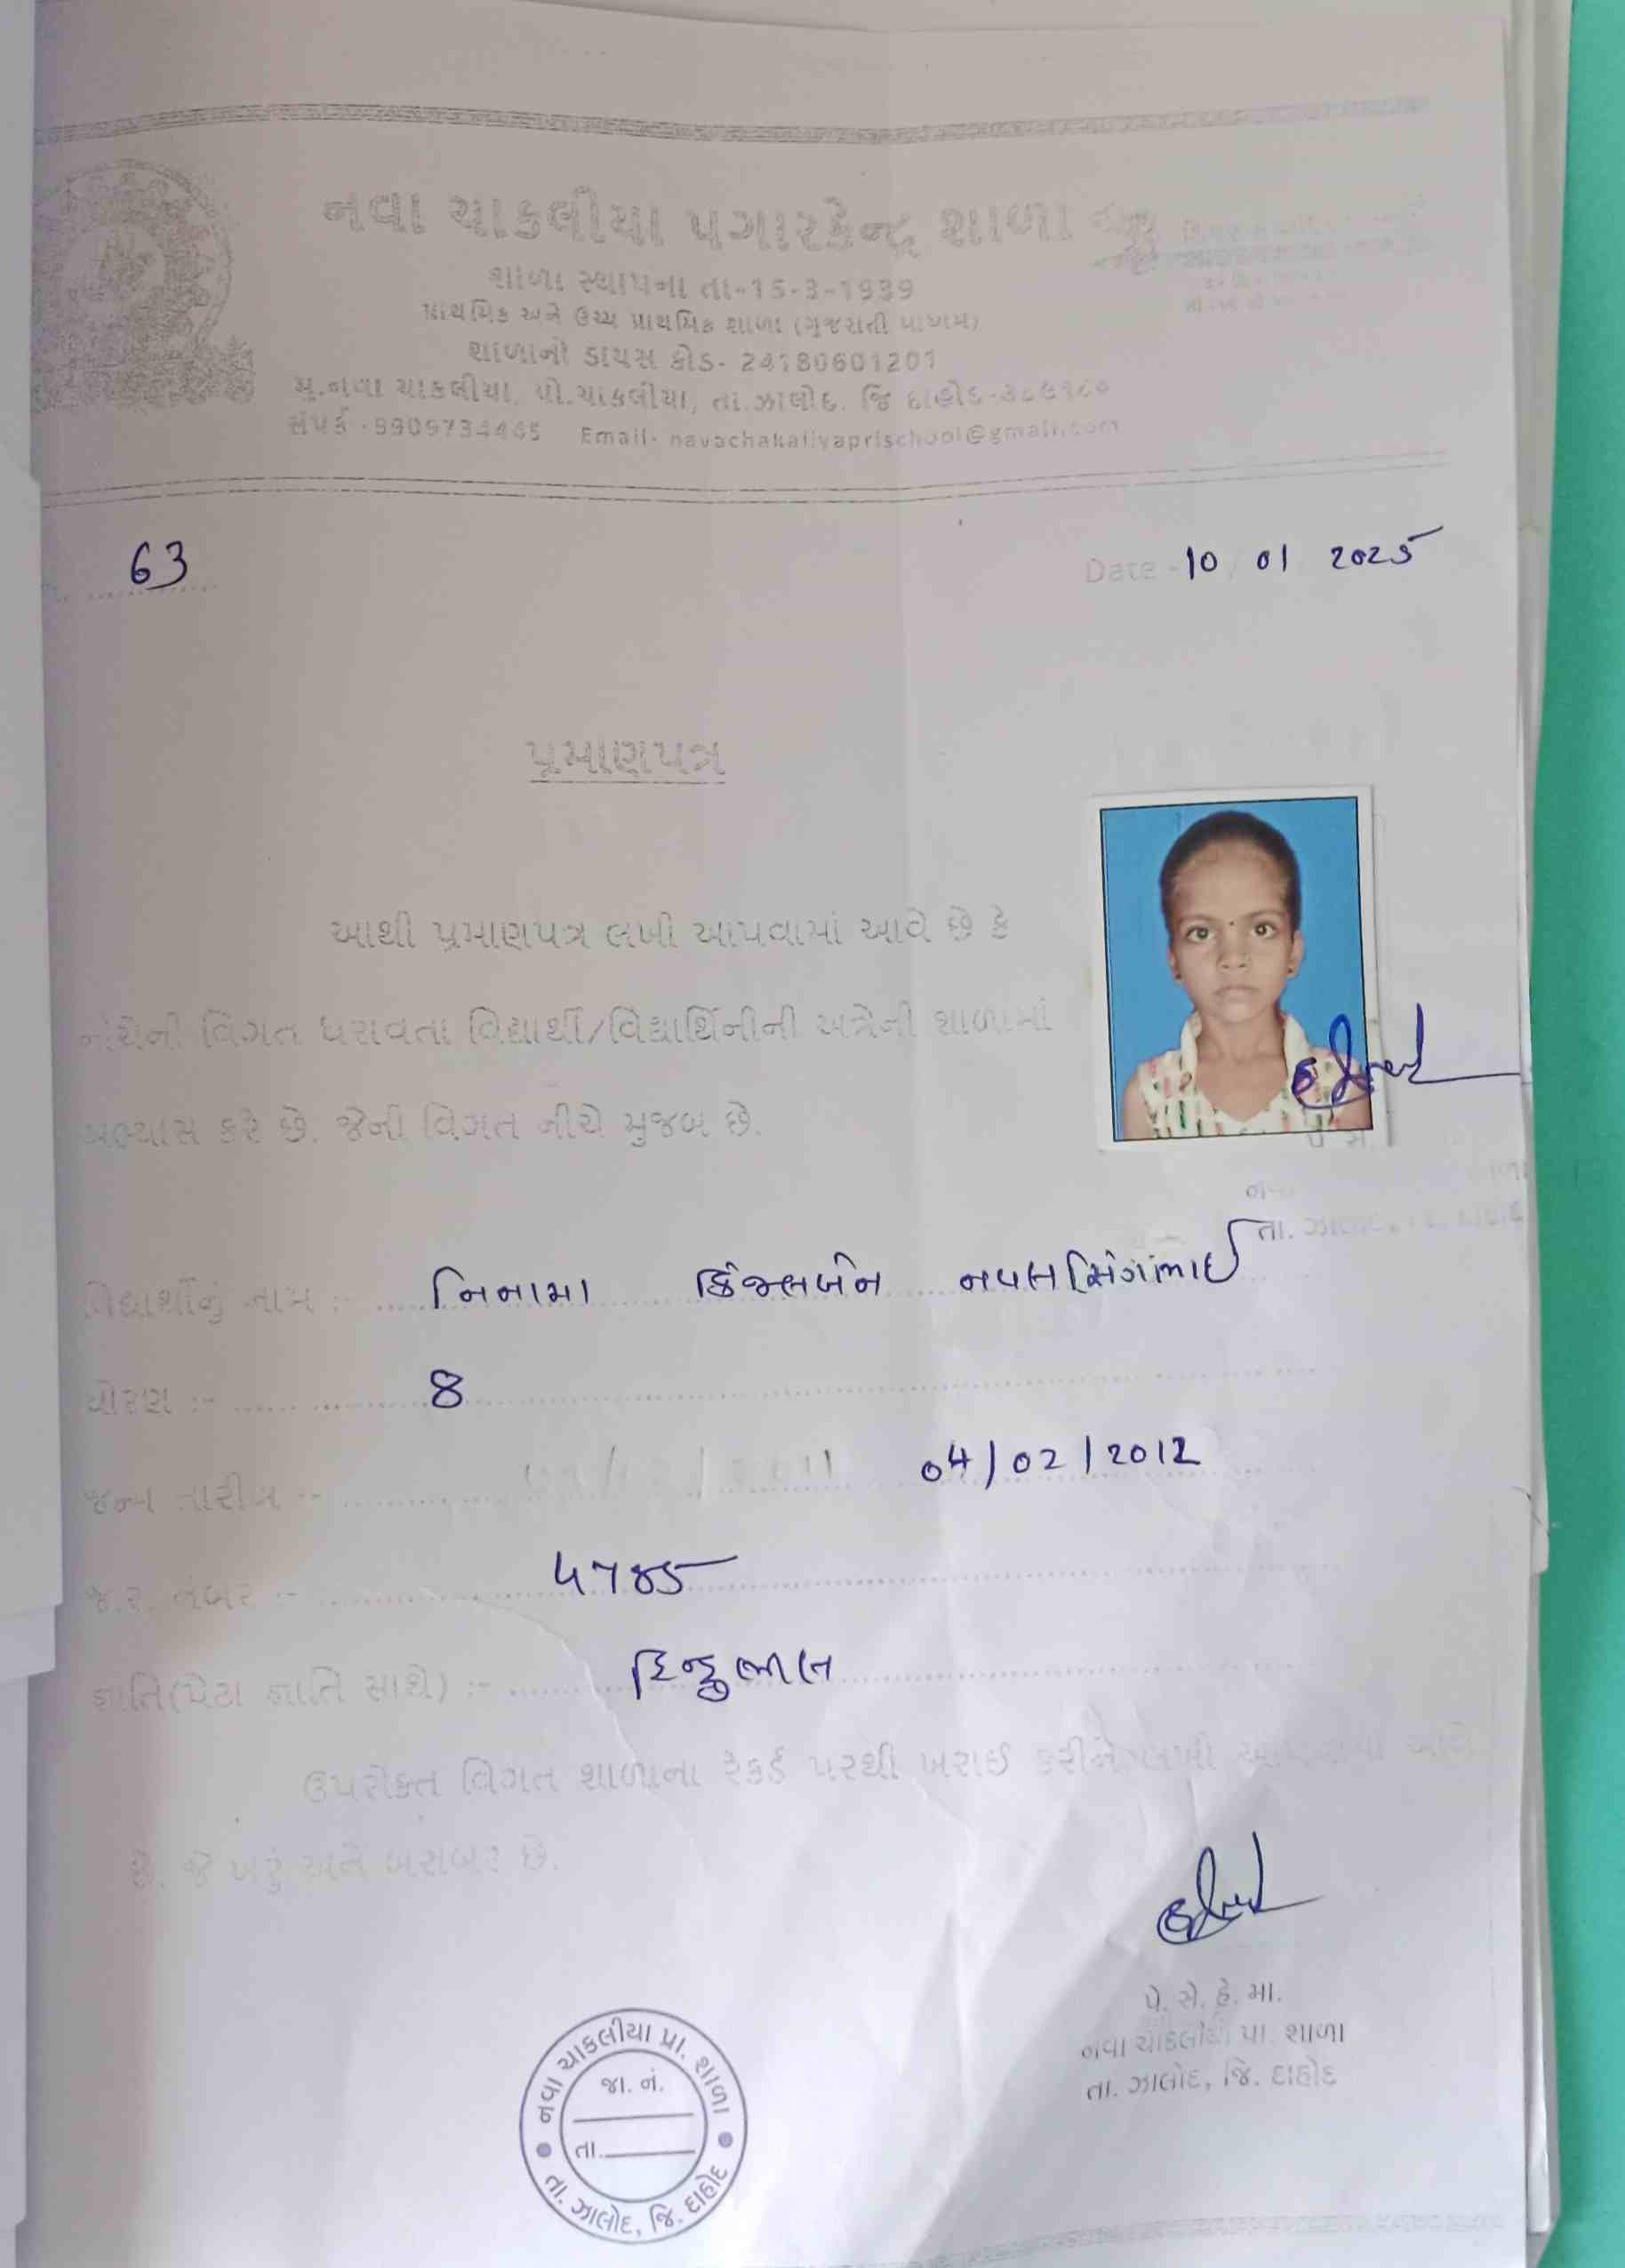 નવા ચાકલીયા પગારકેન્દ્ર શાળા
શાળા સ્થાપના તા-15-3-1939
પ્રાથમિક અને ઉચ્ચ પ્રાથમિક શાળા (ગુજરાતી માધ્યમ)
શાળાનો ડાયસ કોડ- 24180601201
મુ.નવા ચાકલીયા, પો.ચાકલીયા, તા.ઝાલોદ. જિ દાહોદ-૩૮૯૧૮૦
સંપર્ક -9909734445 Email- navachakaliyaprischool@gmail.com
63
Date - 10 / 01 / 2025
પ્રમાણપત્ર
આથી પ્રમાણપત્ર લખી આપવામાં આવે છે કે
નીચેની વિગત ધરાવતા વિદ્યાર્થી/વિદ્યાર્થિનીની અત્રેની શાળામાં
અભ્યાસ કરે છે. જેની વિગત નીચે મુજબ છે.
વિદ્યાર્થીનું નામ :- નિનામા કિંજલબેન નવલસિંગભાઈ
ધોરણ :- 8
જન્મ તારીખ :- 04/02/2012
જ.ર. નંબર :- 4785
જ્ઞાતિ(પેટા જ્ઞાતિ સાથે) :- હિન્દુ ભીલ
ઉપરોક્ત વિગત શાળાના રેકર્ડ પરથી ખરાઈ કરીને લખી આપવામાં આવે
છે. જે ખરું અને બરાબર છે.
પે. સે. હે. મા.
નવા ચાકલીયા પ્રા. શાળા
તા. ઝાલોદ, જિ. દાહોદ
નવા ચાકલીયા પ્રા. શાળા
જા. નં.
તા.
તા. ઝાલોદ, જિ. દાહોદ